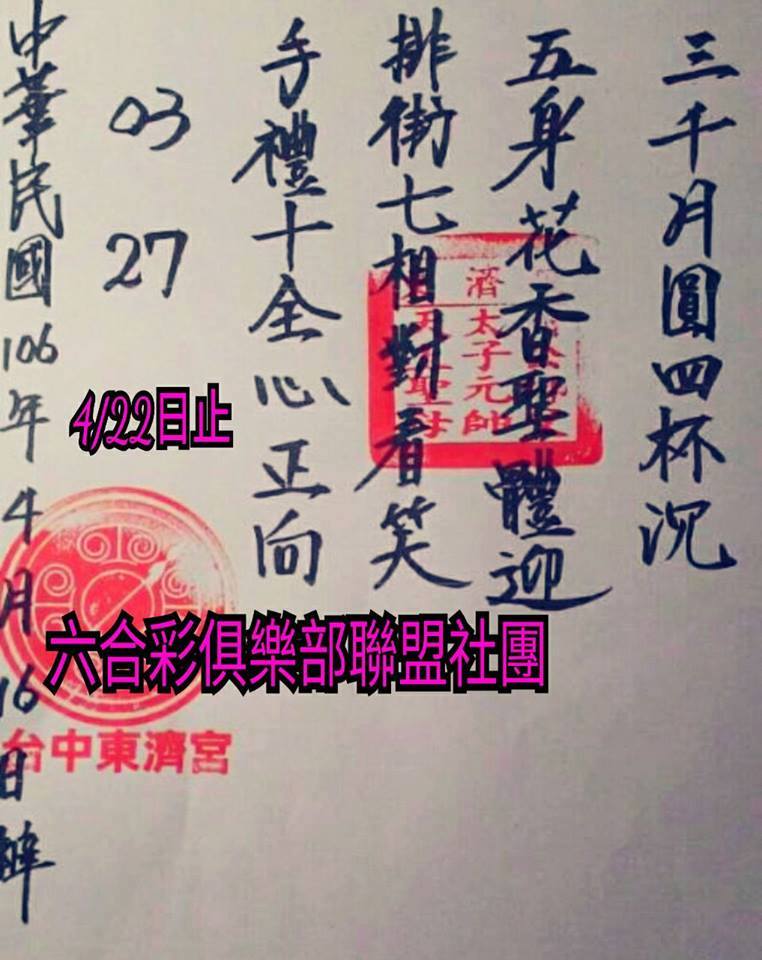 三千月圓四杯沉
五身花香聖體迎
排街七相對看笑
手禮十全心正向
03 27
中華民國106年4月16日
4/22日止
六合彩俱樂部聯盟社團
濟
太子元帥
聖
台中東濟宮